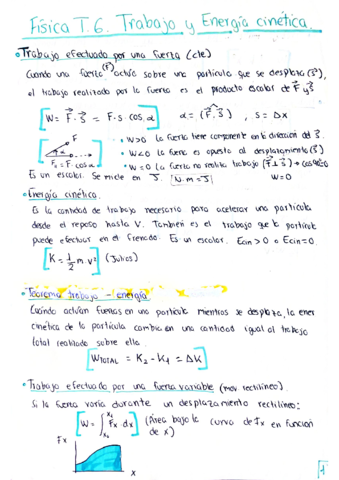 Física T.6. Trabajo y Energía cinética.
• Trabajo efectuado por una fuerza (cte)
Cuando una fuerza (F⃗) actúa sobre una partícula que se desplaza (s⃗),
el trabajo realizado por la fuerza es el producto escalar de F⃗ y s⃗
[W = F⃗ · s⃗ = F · s · cos α] α = (F⃗, s⃗) , s = Δx
• W>0 la fuerza tiene componente en la dirección del s⃗.
• W<0 la fuerza es opuesta al desplazamiento (s⃗)
• W=0 la fuerza no realiza trabajo (F⃗ ⊥ s⃗) → cos 90=0
F
α
Fs = F · cos α
W=0
Es un escalar. Se mide en J. [N·m = J]
• Energía cinética.
Es la cantidad de trabajo necesario para acelerar una partícula
desde el reposo hasta V. También es el trabajo que la partícula
puede efectuar en el frenado. Es un escalar. Ecin > 0 o Ecin = 0.
[K = 1/2 m · v²] (Julios)
• Teorema trabajo - energía
Cuando actúan fuerzas en una partícula mientras se desplaza, la ener
cinética de la partícula cambia en una cantidad igual al trabajo
total realizado sobre ella.
[W TOTAL = K2 - K1 = ΔK]
• Trabajo efectuado por una fuerza variable (mov rectilíneo)
Si la fuerza varía durante un desplazamiento rectilíneo:
[W = ∫ Fx dx] (Área bajo la curva de Fx en función
de x)
Fx
x
1